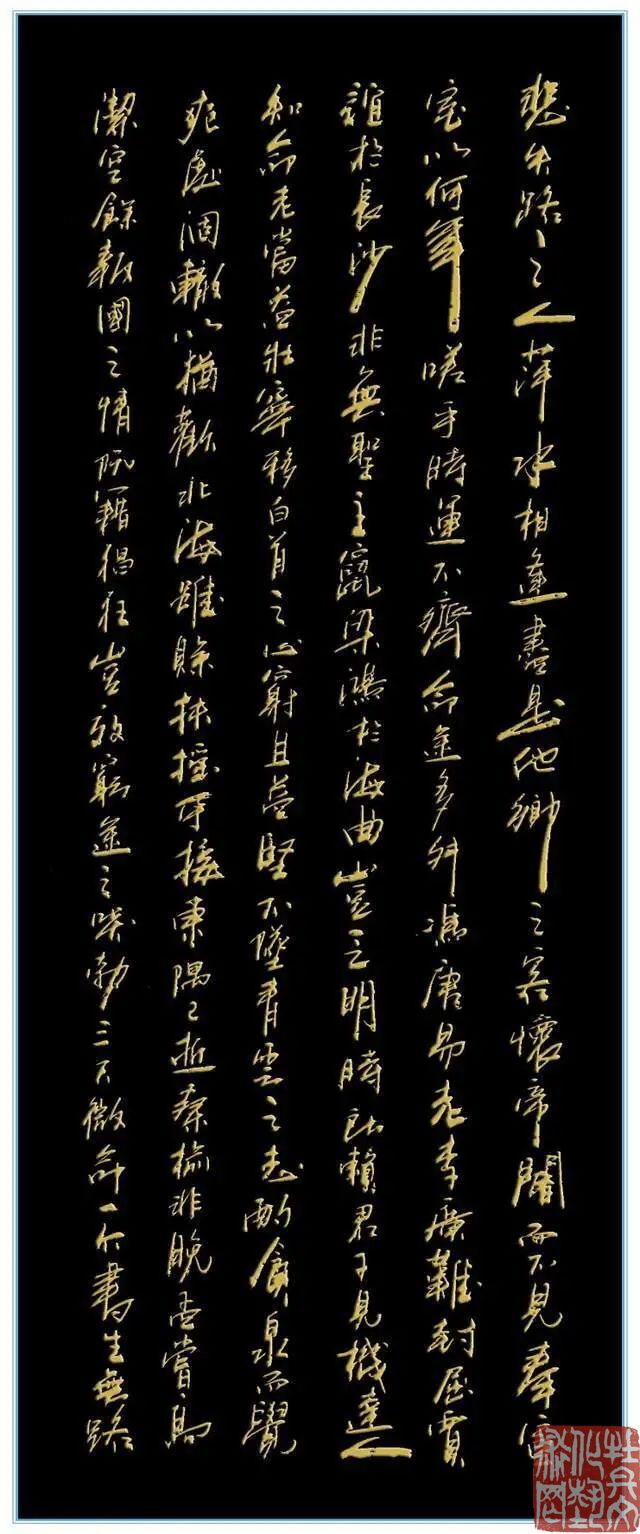 悲失路之人萍水相逢盡是他鄉之客懷帝閽而不見奉宣
室以何年嗟乎時運不齊命途多舛馮唐易老李廣難封屈賈
誼於長沙非無聖主竄梁鴻於海曲豈乏明時所賴君子見機達人
知命老當益壯寧移白首之心窮且益堅不墜青雲之志酌貪泉而覺
爽處涸轍以猶歡北海雖賒扶搖可接東隅已逝桑榆非晚孟嘗高
潔空餘報國之情阮籍猖狂豈效窮途之哭勃三尺微命一介書生無路